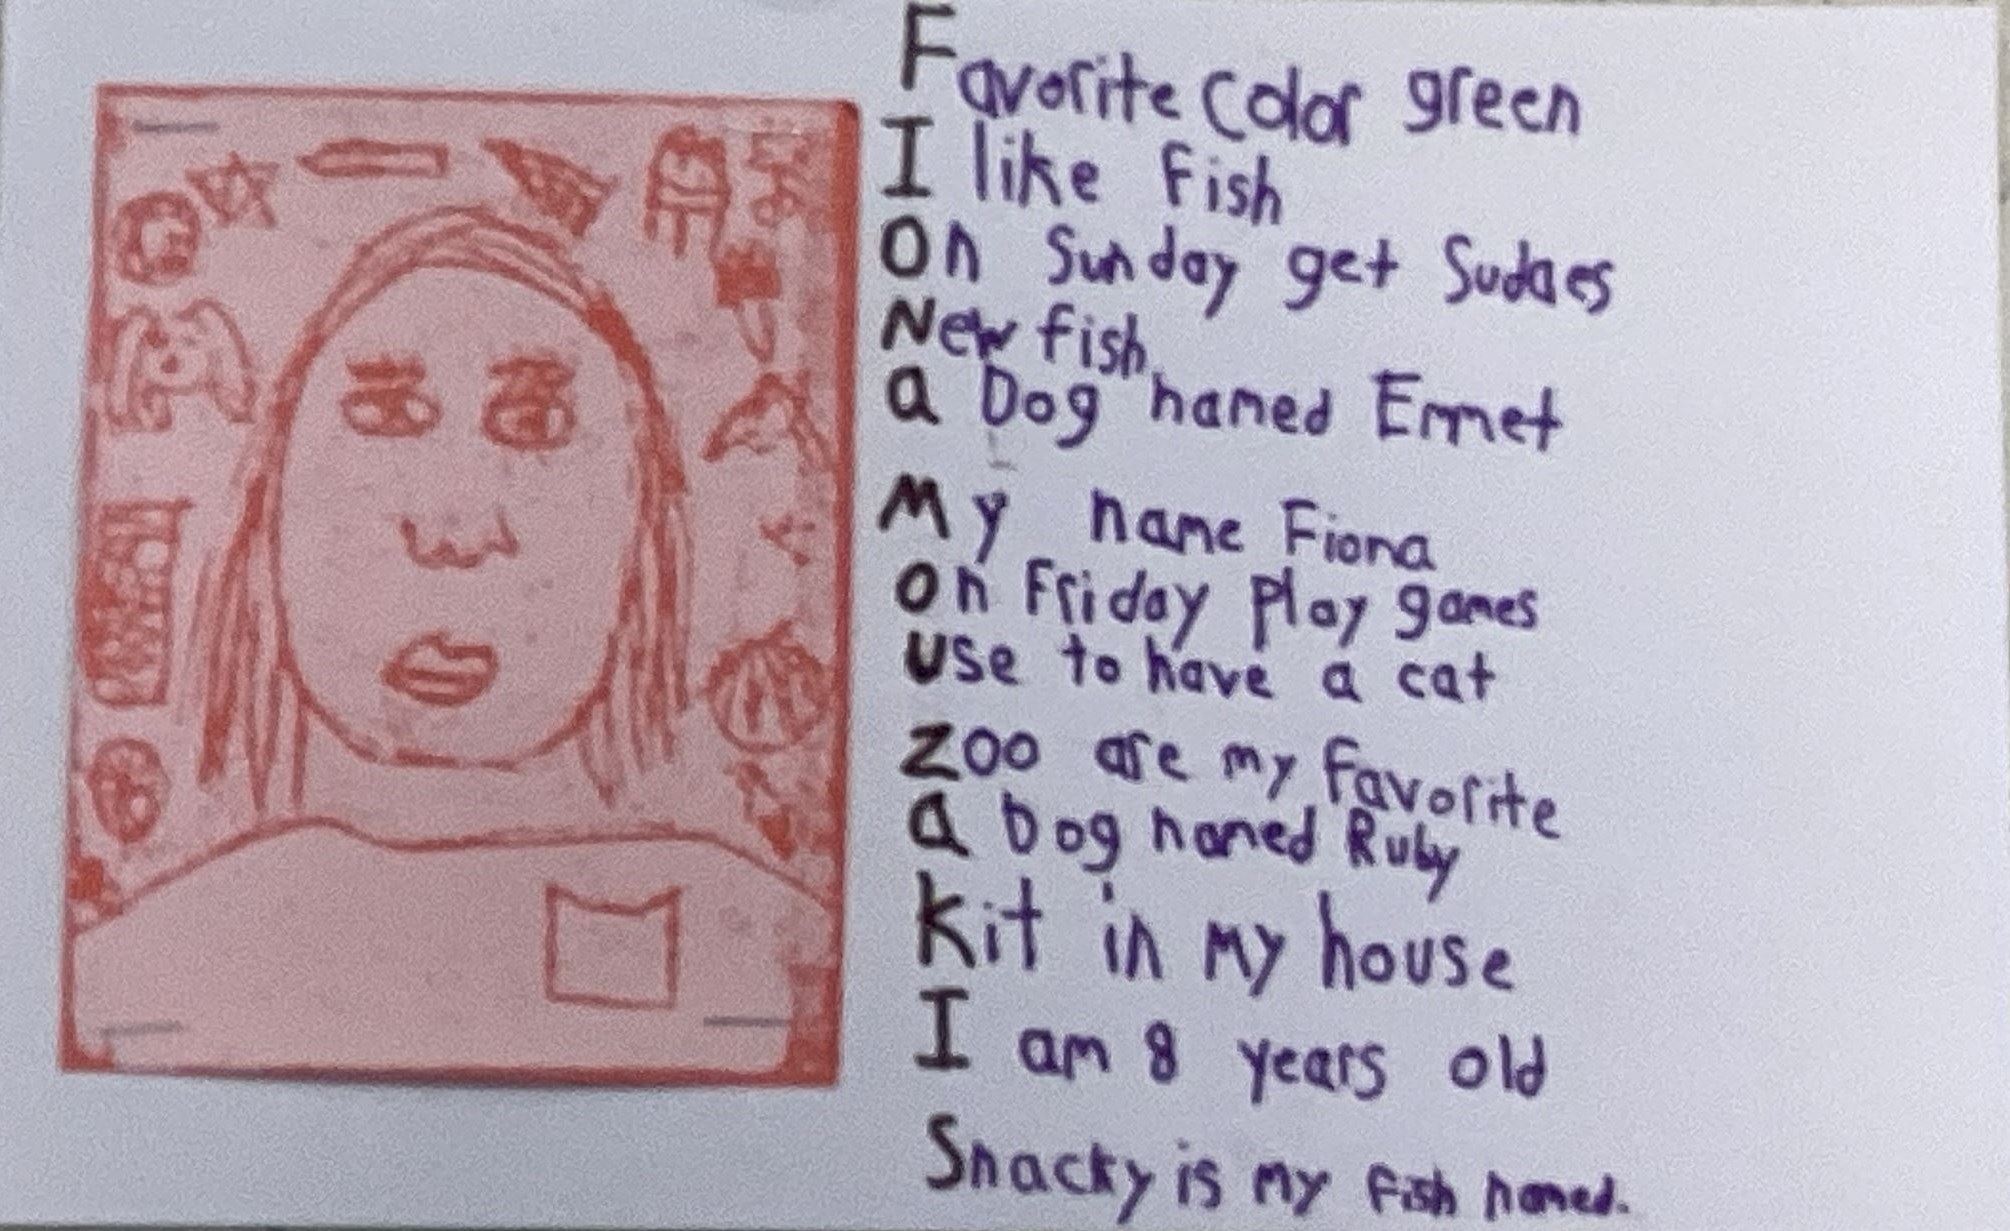 Favorite color green
I like Fish
On Sunday get Sudaes
New fish
a Dog named Emmet
My name Fiona
on Friday Play games
use to have a cat
Zoo are my Favorite
a Dog named Ruby
Kit in my house
I am 8 years old
Snacky is my Fish named.